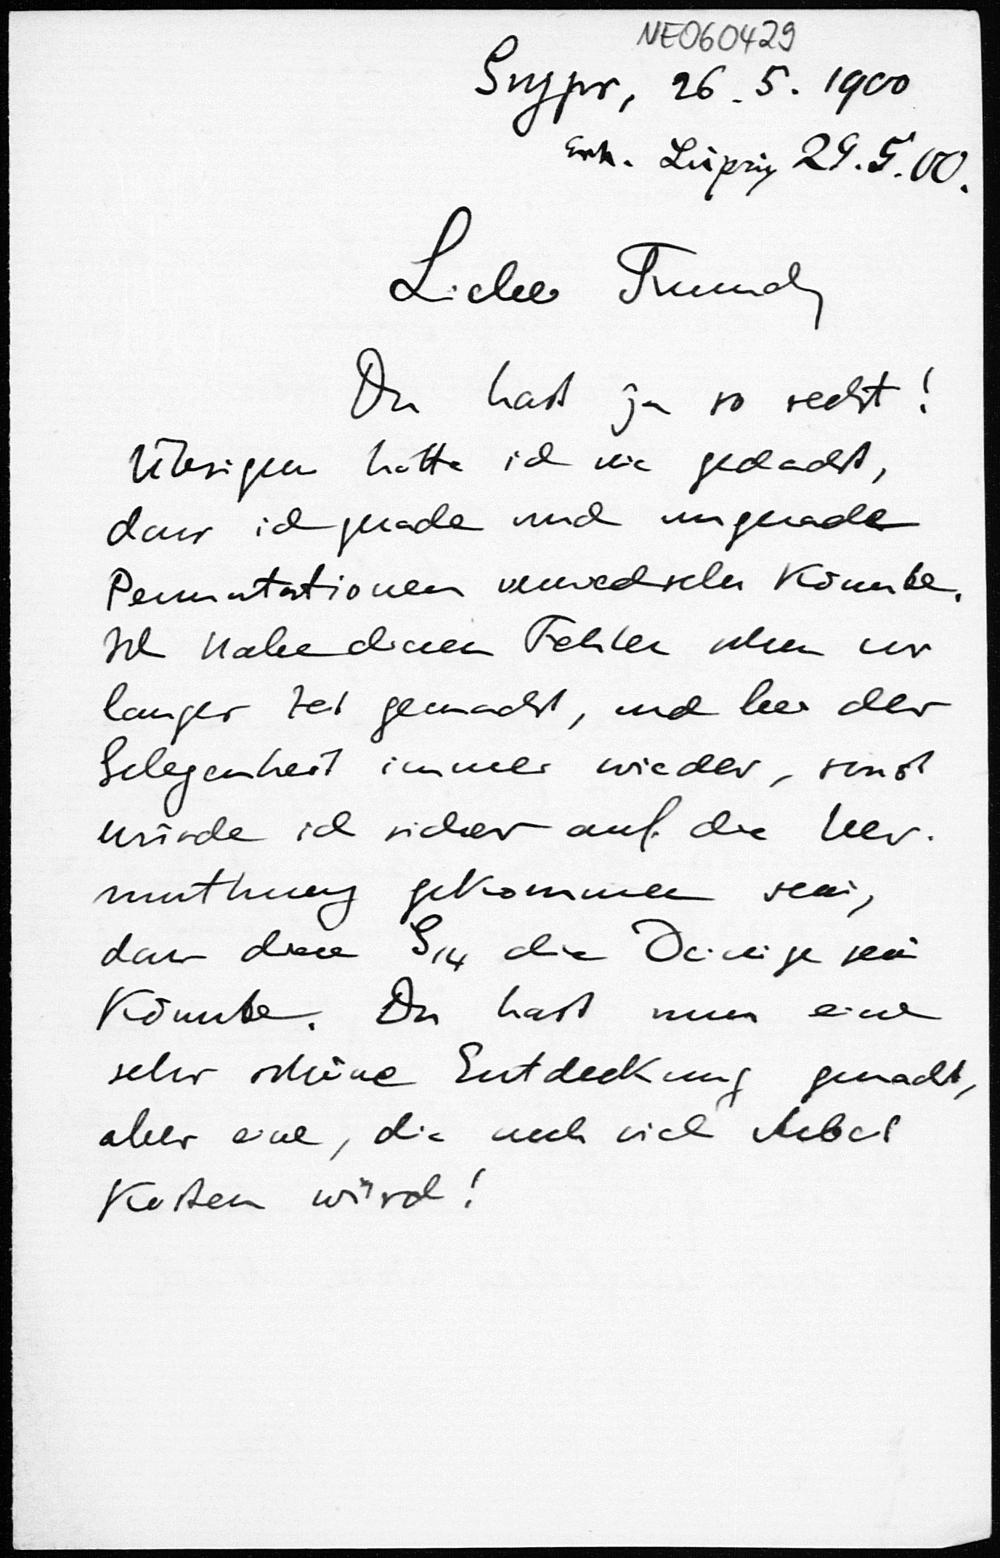 NE060429
26. 5. 1900
Erh. Leipzig 29.5.00.
Lieber Freund,
Du hast ja so recht!
Übrigen hätte ich nie gedacht,
dass ich gerade und ungerade
Permutationen verwechseln könnte.
Ich habe diesen Fehler schon vor
langer Zeit gemacht, und bei der
Gelegenheit immer wieder, sonst
würde ich sicher auf die Ver-
muthung gekommen sein,
dass diese G₁₄ die Deinige sein
könnte. Du hast nun eine
sehr schöne Entdeckung gemacht,
aber eine, die noch viel Arbeit
kosten wird!